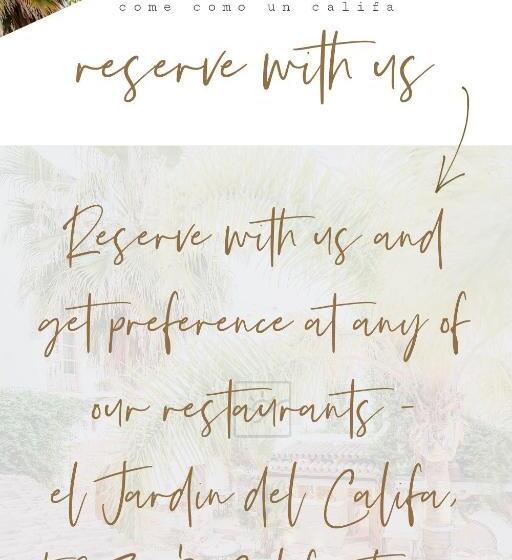 come como un califa
reserve with us
Reserve with us and
get preference at any of
our restaurants -
el Jardin del Califa,